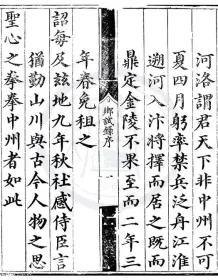 河洛謂君天下非中州不可
夏四月躬率禁兵泛舟江淮
遡河入汴將擇而居之既而
鼎定金陵不果至而二年三
鄉試錄序
一
年春免租之
詔每及該地九年秋社感侍臣言
猶勤山川與古今人物之思
聖心之拳拳中州者如此